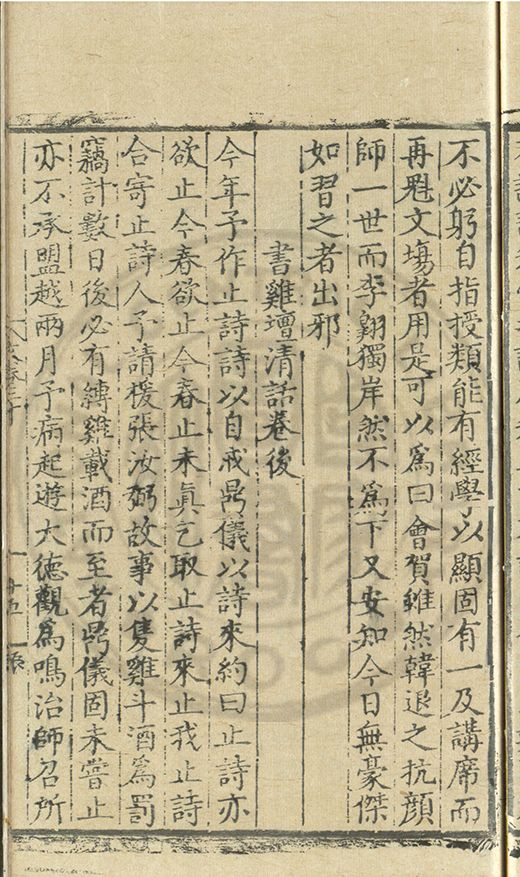 不必躬自指授類能有經學以顯固有一及講席而
再魁文場者用是可以為曰會賀雖然韓退之抗顏
師一世而李翱獨岸然不為下又安知今日無豪傑
如習之者出邪
書雞壇清話卷後
今年予作止詩詩以自戒鼎儀以詩來約曰止詩亦
欲止今春欲止今春止未真乞取止詩來止我止詩
合寄止詩人予請援張汝弼故事以隻雞斗酒為罰
竊計數日後必有縛雞載酒而至者鼎儀固未嘗止
亦不承盟越兩月予病起遊大德觀為鳴治師召所
十五
張